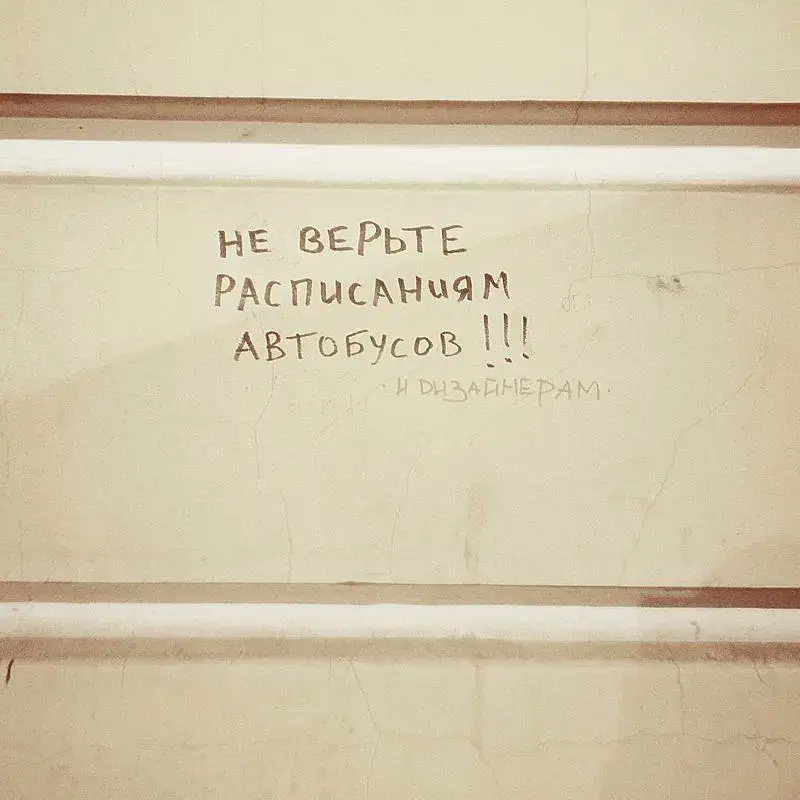 НЕ ВЕРЬТЕ
РАСПИСАНИЯМ
АВТОБУСОВ!!!
И ДИЗАЙНЕРАМ.